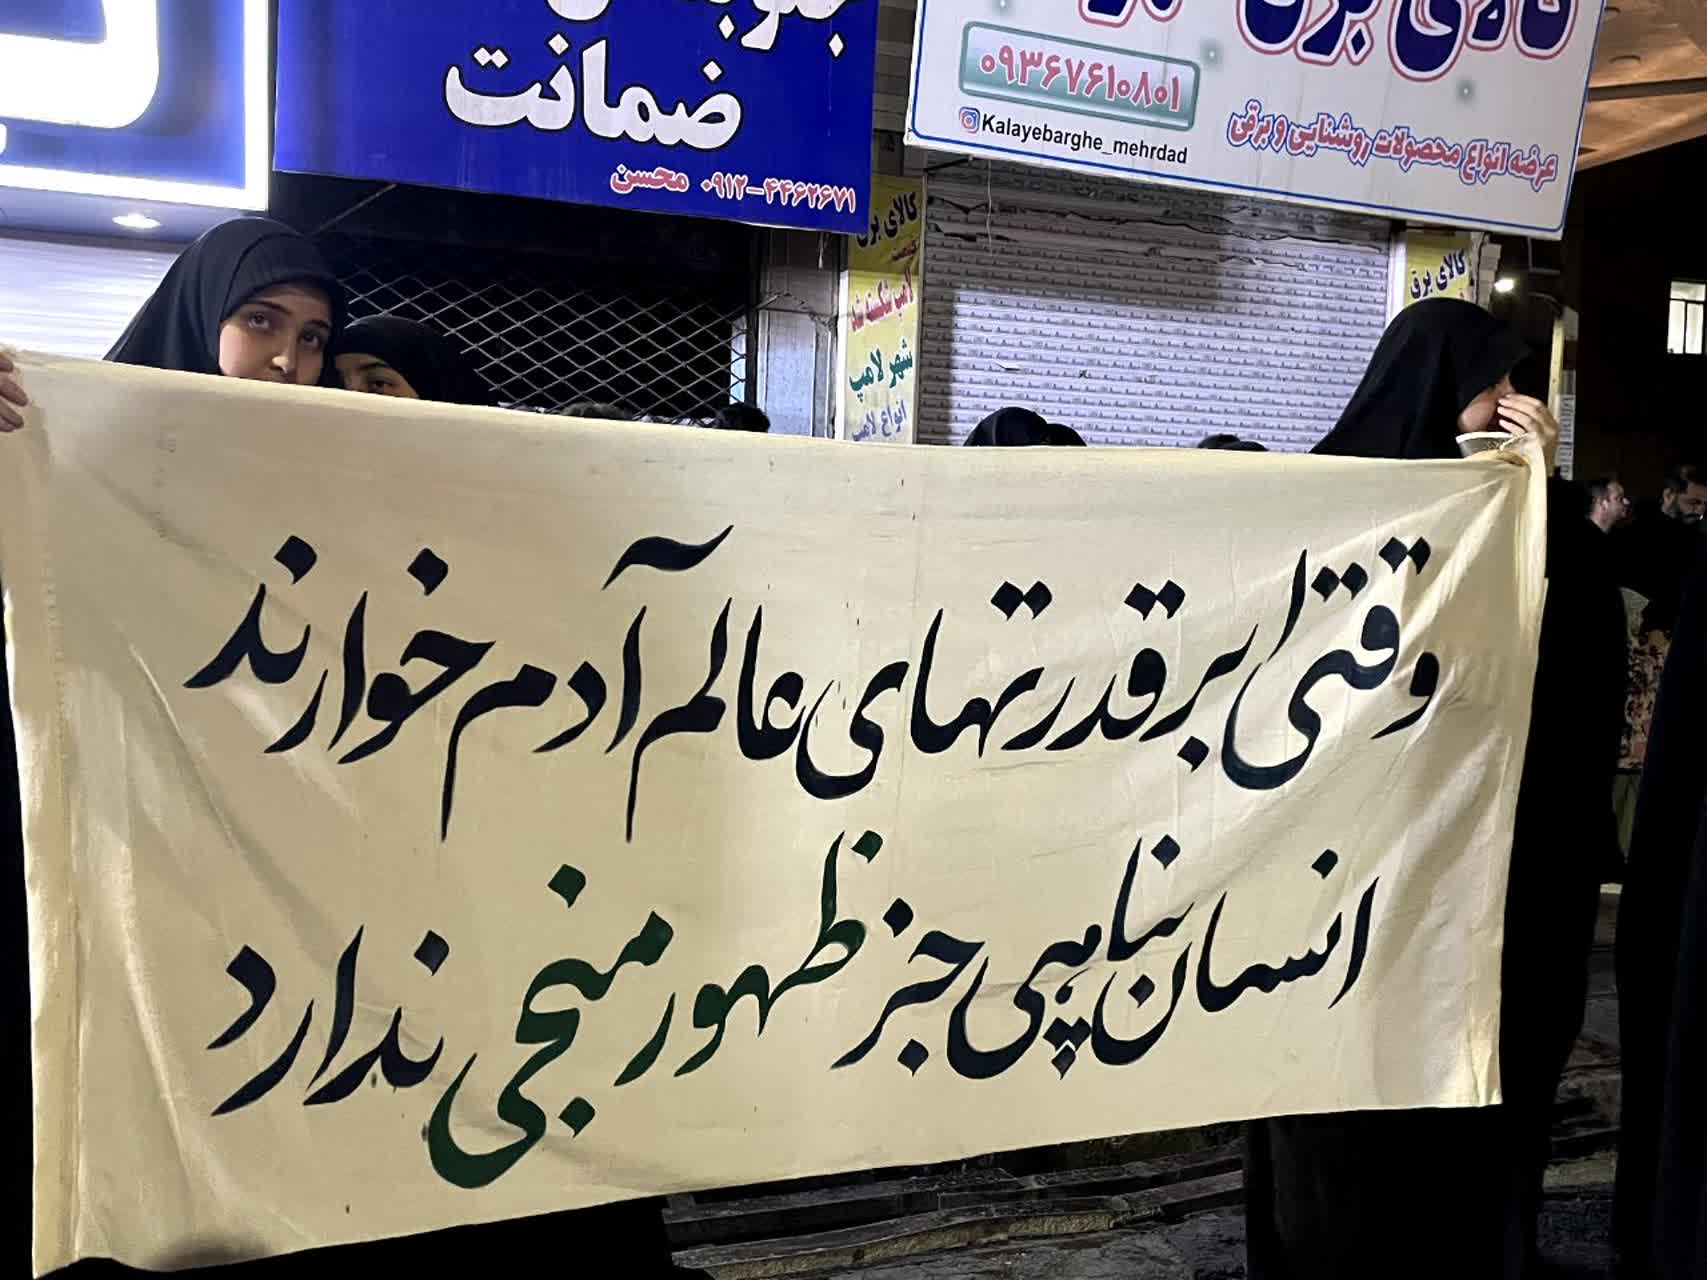 ضمانت
۰۹۱۲-۴۴۶۲۶۷۱ محسن
کالای برق
۰۹۳۶۷۶۱۰۸۰۱
Kalayebarghe_mehrdad
عرضه انواع محصولات روشنایی و برقی
کالای برق
لامپ شکسته شده
شهر لامپ
انواع لامپ
کالای برق
وقتی ابرقدرتهای عالم آدم خوارند
انسان پناهی جز ظهور منجی ندارد